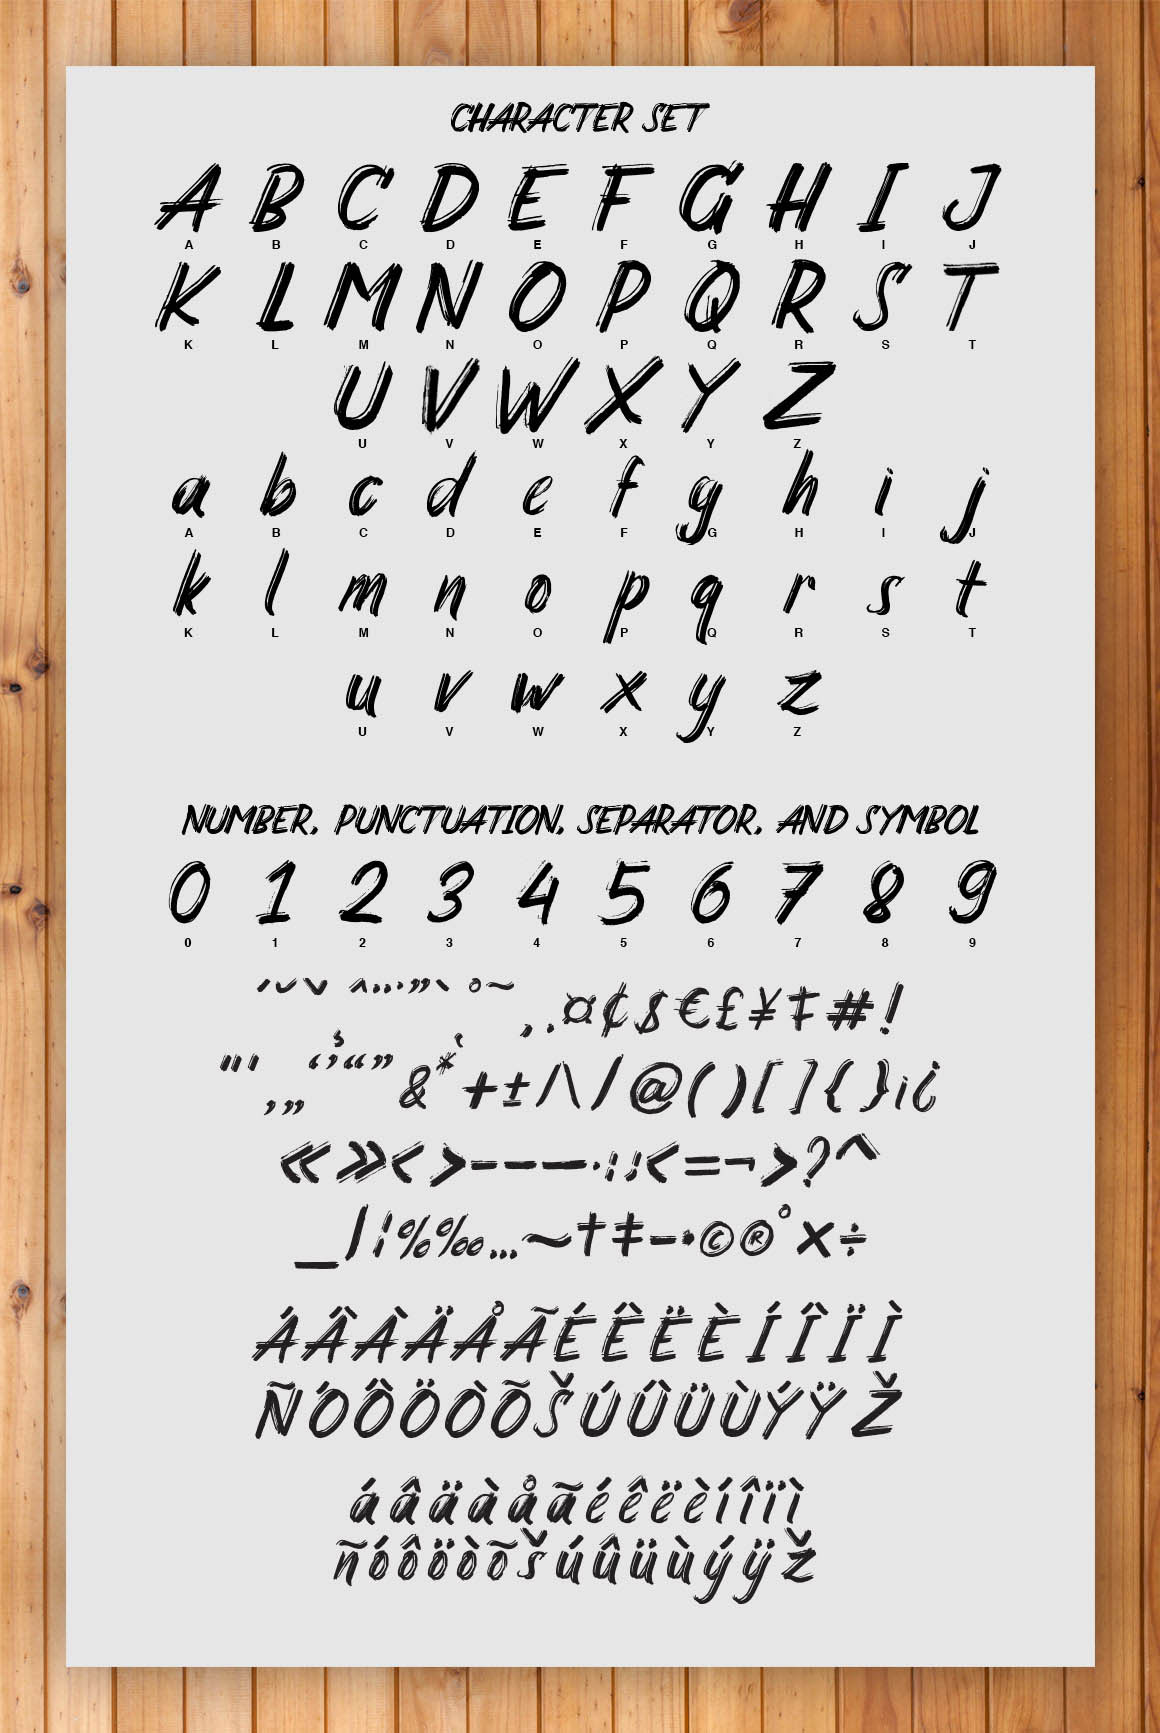 CHARACTER SET
A B C D E F G H I J
A B C D E F G H I J
K L M N O P Q R S T
K L M N O P Q R S T
U V W X Y Z
U V W X Y Z
a b c d e f g h i j
A B C D E F G H I J
k l m n o p q r s t
K L M N O P Q R S T
u v w x y z
U V W X Y Z
NUMBER, PUNCTUATION, SEPARATOR, AND SYMBOL
0 1 2 3 4 5 6 7 8 9
0 1 2 3 4 5 6 7 8 9
´ ˘ ˇ ^ ¨ ˙ ˝ ` ˚ ˜ , . ¤ ¢ $ € £ ¥ ‡ # !
" ' ‚ „ ‘ ’ “ ” & * + ± / \ / @ ( ) [ ] { } ¡ ¿
« » ‹ › - – — · : ; < = ¬ > ? ^
_ | ¦ % ‰ … ~ † ‡ - • © ® ° × ÷
Á Â À Ä Å Ã É Ê Ë È Í Î Ï Ì
Ñ Ó Ô Ö Ò Õ Š Ú Û Ü Ù Ý Ÿ Ž
á â ä à å ã é ê ë è í î ï ì
ñ ó ô ö ò õ š ú û ü ù ý ÿ ž